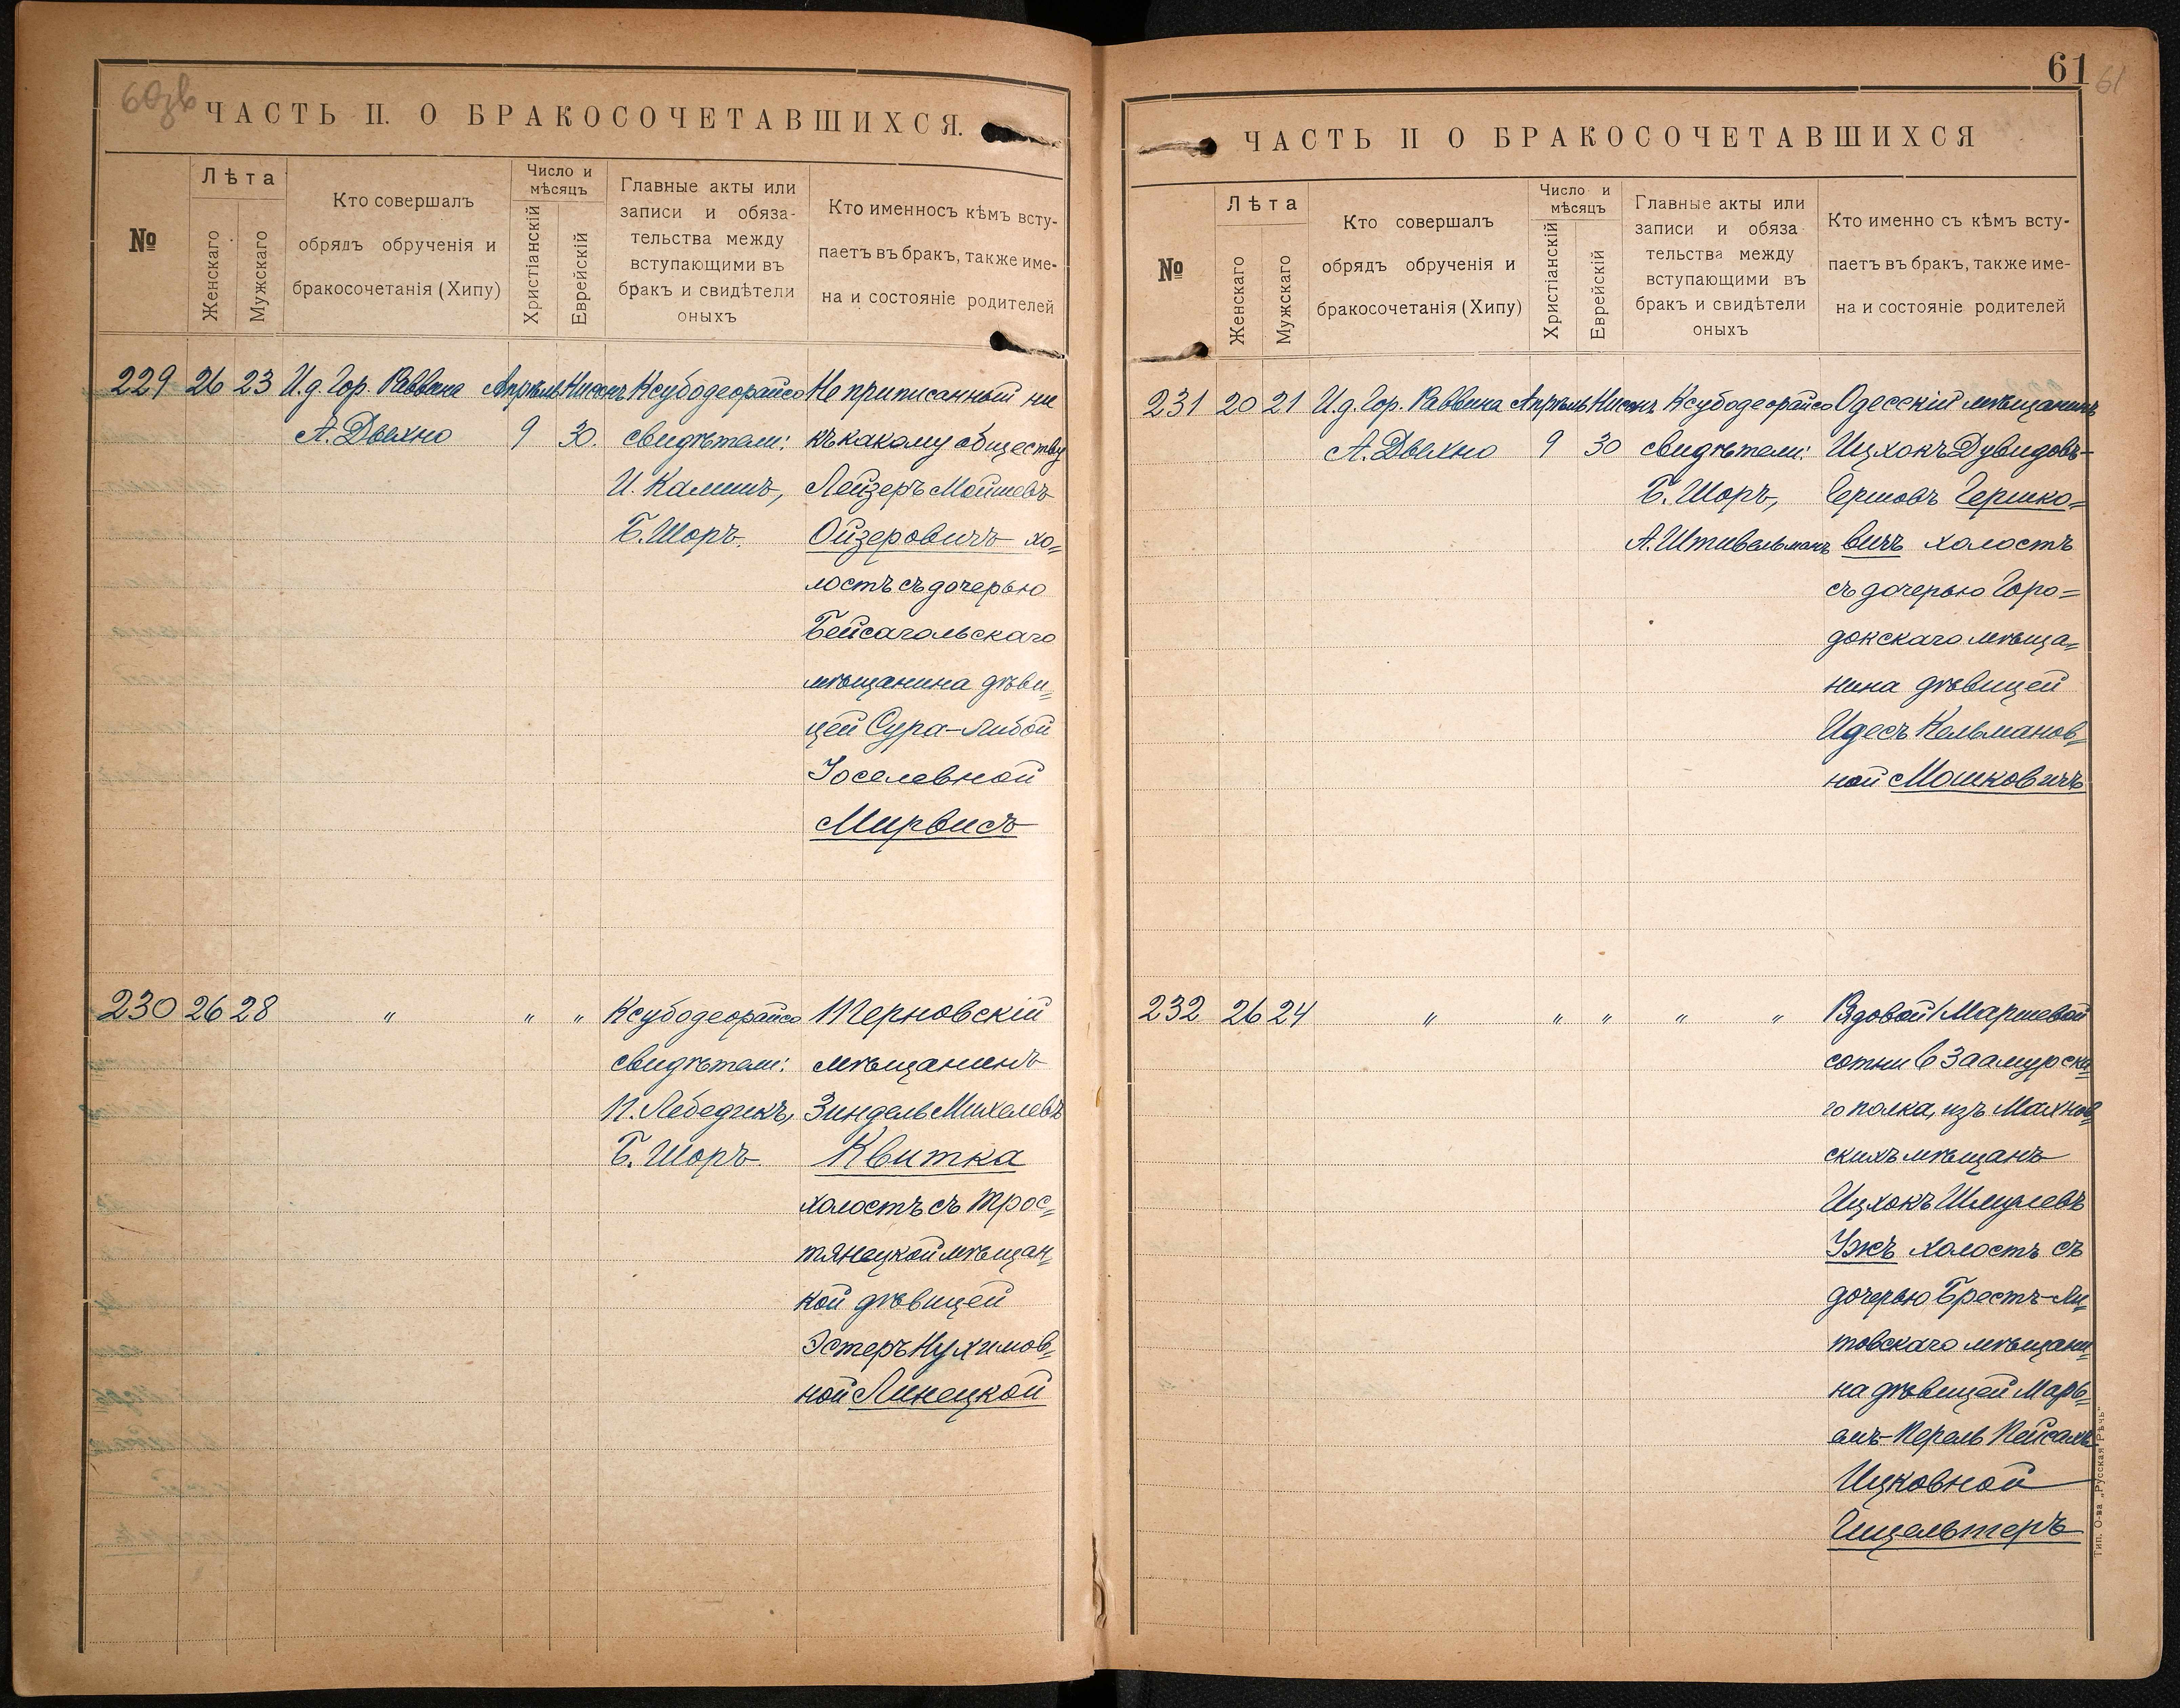 60зв
ЧАСТЬ II. О БРАКОСОЧЕТАВШИХСЯ.
№
Лѣта
Женскаго
Мужскаго
Кто совершалъ
обрядъ обрученія и
бракосочетанія (Хипу)
Число и
мѣсяцъ
Христіанскій
Еврейскій
Главные акты или
записи и обяза-
тельства между
вступающими въ
бракъ и свидѣтели
оныхъ
Кто именносъ кѣмъ всту-
паетъ въ бракъ, также име-
на и состояніе родителей
229 26 23 И.д. Гор. Раввина Апрѣль Нисонъ Ксубодеорайсо Не приписанный ни
А. Дыхно 9 30. свидѣтели: къ какому обществу
И. Калишъ, Лейзеръ Мойшевъ
Б. Шоръ. Ойзеровичъ хо=
лостъ съ дочерью
Бейсагольскаго
мѣщанина дѣви=
цей Сура-Либой
Іоселевной
Мирвисъ
230 26 28 " " " Ксубодеорайсо Терновскій
свидѣтели: мѣщанинъ
П. Лебедикъ, Зиндель Михелевъ
Б. Шоръ. Квитка
холостъ съ Трос=
тянецкой мѣщан=
кой дѣвицей
Эстеръ Нухимов=
ной Линецкой
61
61
ЧАСТЬ II О БРАКОСОЧЕТАВШИХСЯ
№
Лѣта
Женскаго
Мужскаго
Кто совершалъ
обрядъ обрученія и
бракосочетанія (Хипу)
Число и
мѣсяцъ
Христіанскій
Еврейскій
Главные акты или
записи и обяза
тельства между
вступающими въ
бракъ и свидѣтели
оныхъ
Кто именно съ кѣмъ всту-
паетъ въ бракъ, также име-
на и состояніе родителей
231 20 21 И.д. Гор. Раввина Апрѣль Нисонъ Ксубодеорайсо Одесскій мѣщанинъ
А. Дыхно 9 30 свидѣтели: Ицхокъ Дувидовъ-
Б. Шоръ, Гершовъ Гершко=
А. Штивельманъ вичъ холостъ
съ дочерью Горо=
докскаго мѣща=
нина дѣвицей
Идесъ Кельманов=
ной Мошковичъ
232 26 24 " " " " " Рядовой Маршевой
сотни 6 Заамурска=
го полка, изъ Махнов=
скихъ мѣщанъ
Ицхокъ Шмулевъ
Ужъ холостъ съ
дочерью Брестъ-Ли=
товскаго мѣщани=
на дѣвицей Марь=
ямъ-Перель Пейсахъ-
Ицковной
Гицельтеръ
Тип. О-ва „Русская Рѣчь"